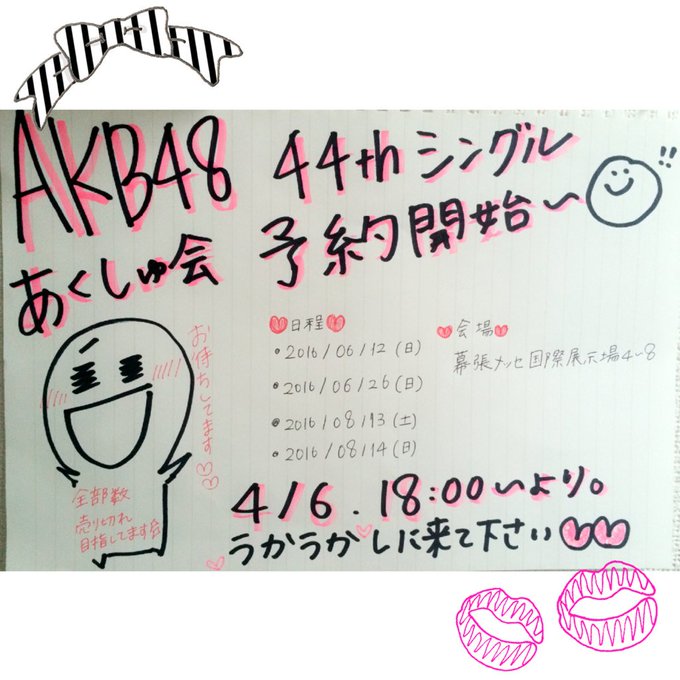 AKB48 44thシングル
あくしゅ会 予約開始〜!!
お待ちしてます♡♡
♥日程♥
• 2016/06/12(日)
• 2016/06/26(日)
• 2016/08/13(土)
• 2016/08/14(日)
♥会場♥
幕張メッセ国際展示場4~8
全部数
売り切れ
目指してます会
4/6. 18:00〜より。
うかうかしに来て下さい♥♥